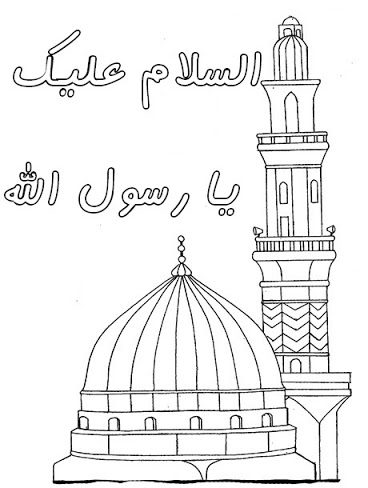 السلام عليك
يا رسول الله